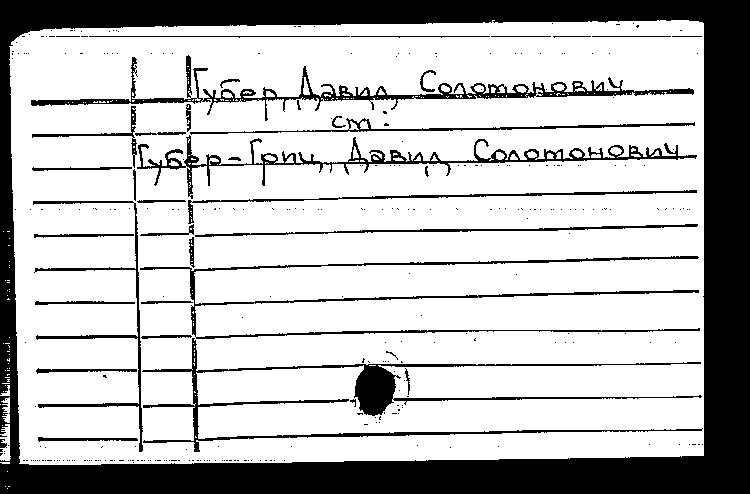 Губер, Давид Соломонович
см:
Губер-Гриц, Давид Соломонович